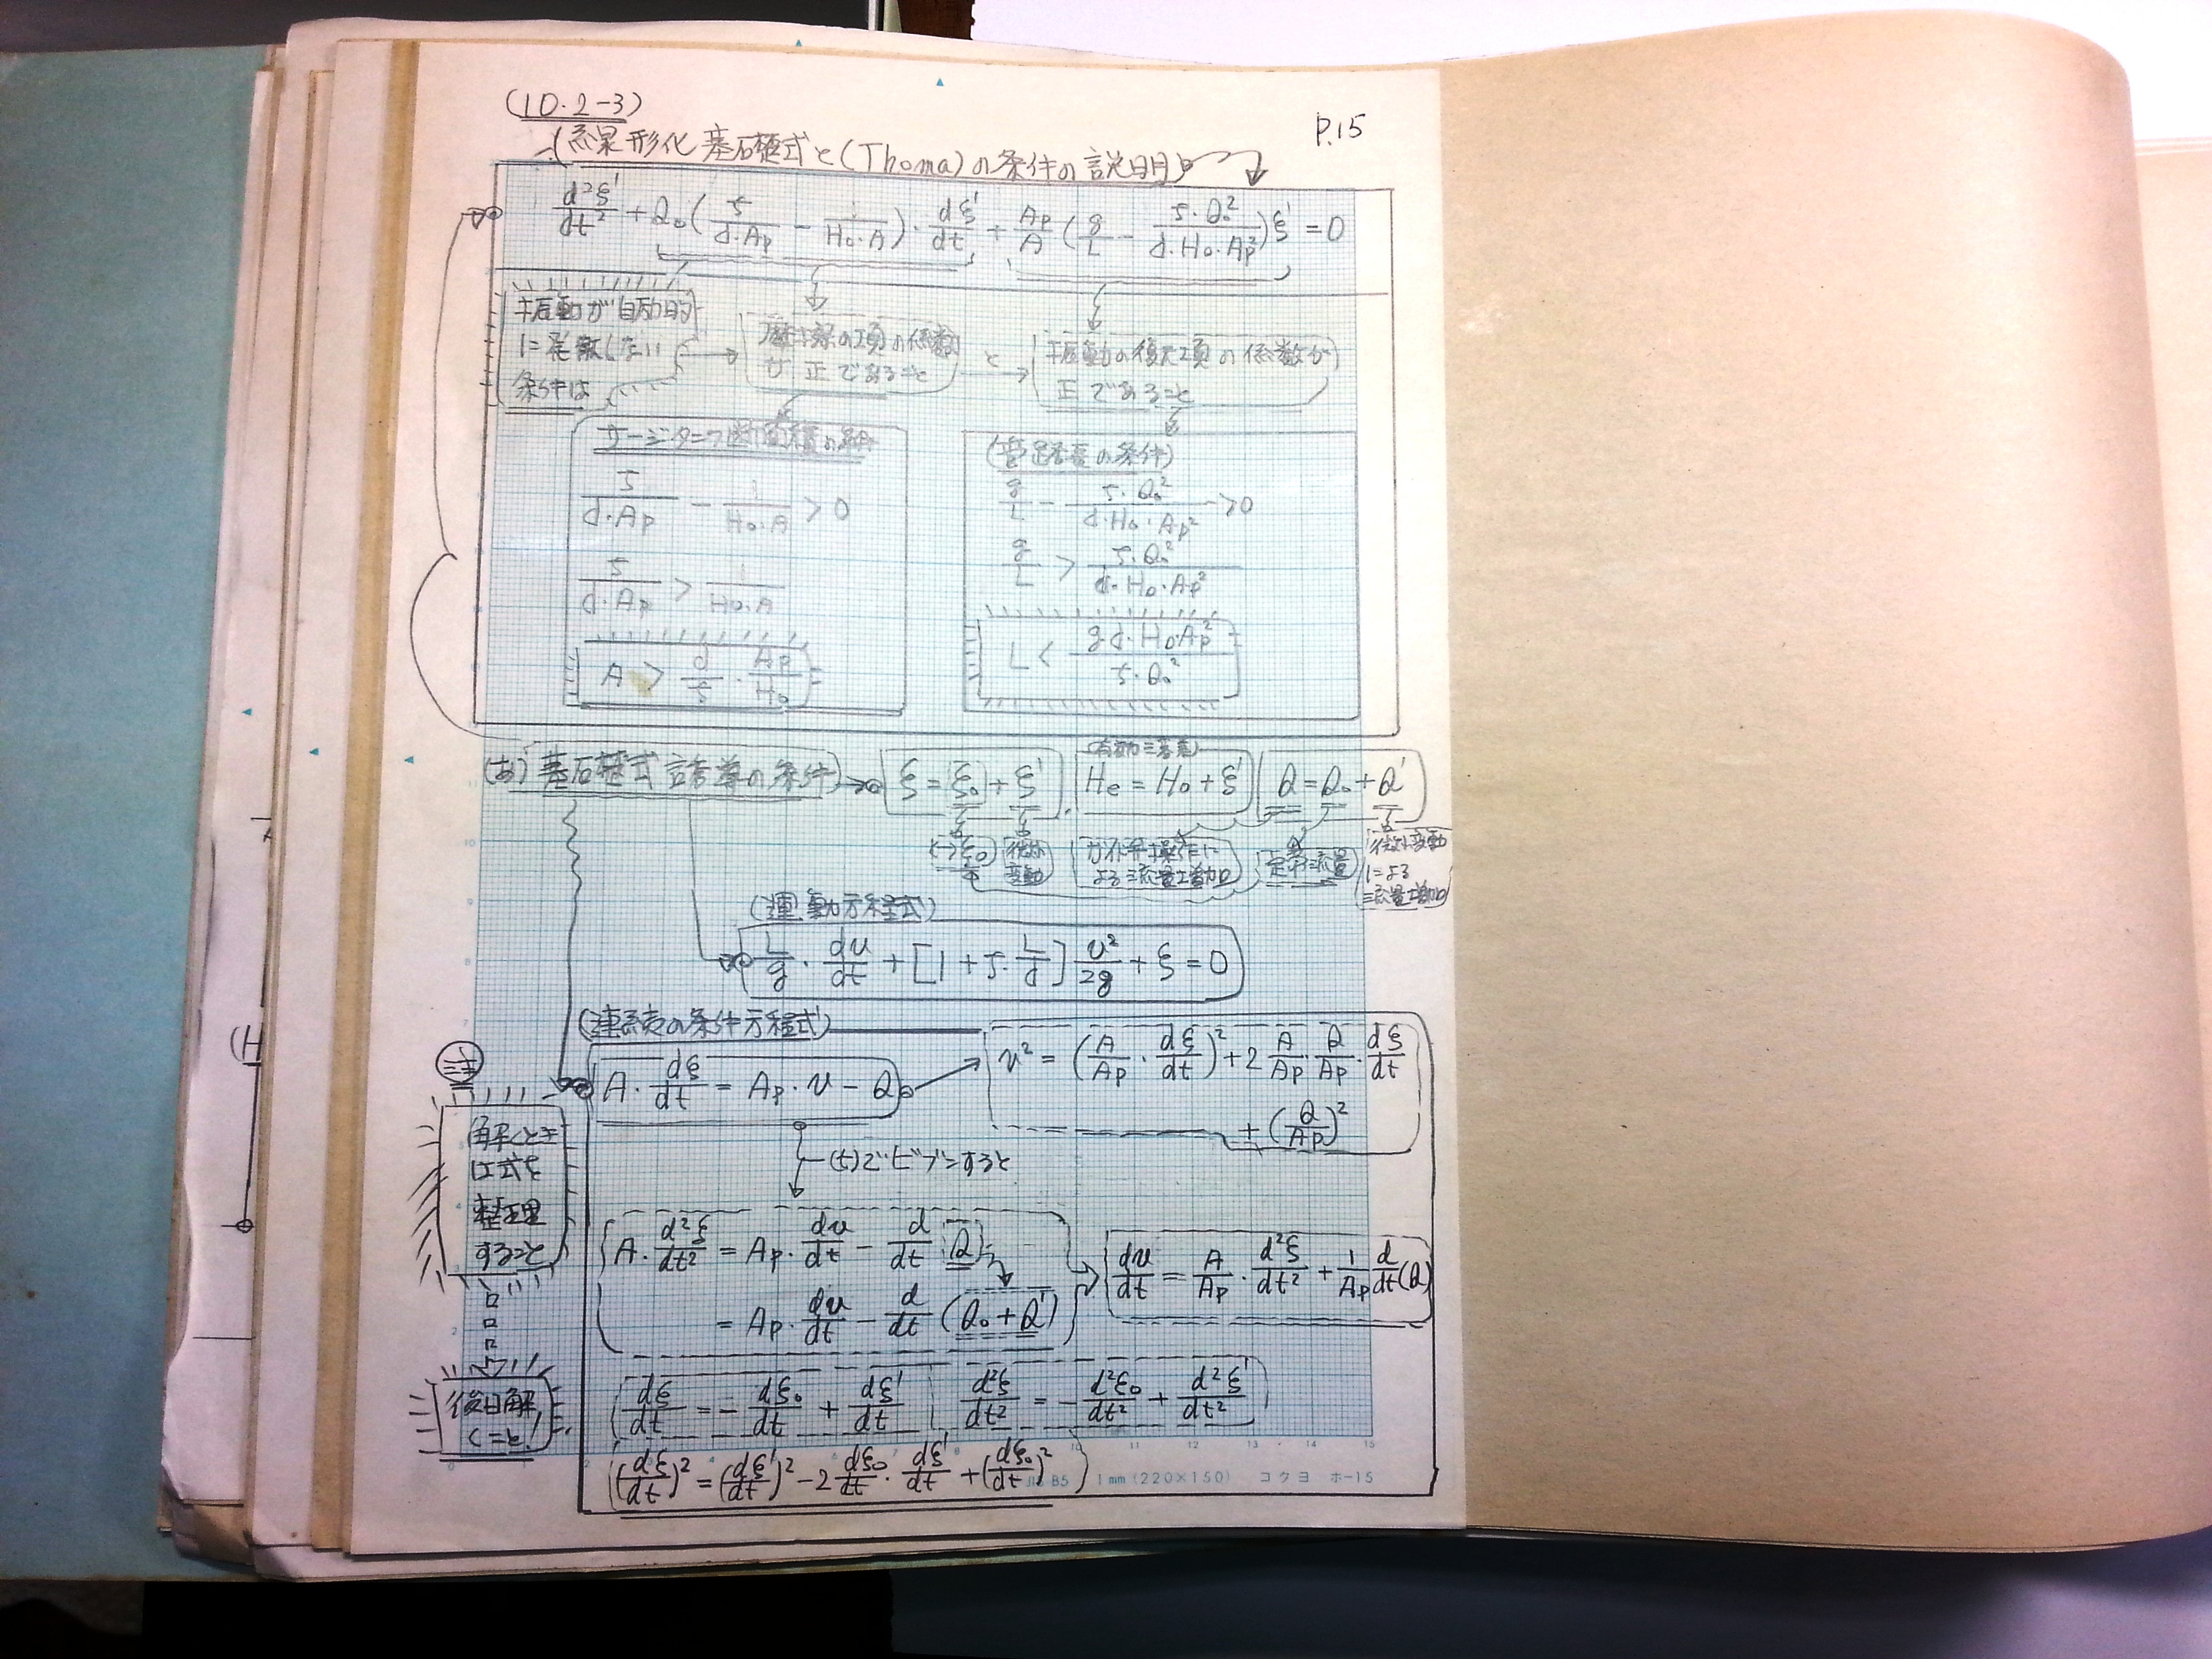 (10.2-3)
P.15
(線形化基礎式と(Thoma)の条件の説明)
d²ξ'/dt² + Q₀(ζ/d·Ap − 1/H₀·A)·dξ'/dt + Ap/A(g/L − ζ·Q₀²/d·H₀·Ap²)ξ' = 0
振動が自励的
に発散しない
条件は
摩擦の項の係数
が正であること
と
振動の復元項の係数が
正であること
サージタンク断面積の条件
ζ/d·Ap − 1/H₀·A > 0
ζ/d·Ap > 1/H₀·A
A > d/ζ · Ap/H₀
(管路長の条件)
g/L − ζ·Q₀²/d·H₀·Ap² > 0
g/L > ζ·Q₀²/d·H₀·Ap²
L < g·d·H₀·Ap²/ζ·Q₀²
(あ)基礎式誘導の条件
ξ = ξ₀ + ξ'
(有効落差)
He = H₀ + ξ'
Q = Q₀ + Q'
(-)ξ₀
微小
変動
ガイド弁操作に
よる流量増加
定常流量
微小変動
による
流量増加
(運動方程式)
L/g · dv/dt + [1 + ζ·L/d] v²/2g + ξ = 0
(連続の条件方程式)
A·dξ/dt = Ap·v − Q
v² = (A/Ap · dξ/dt)² + 2 A/Ap · Q/Ap · dξ/dt
+ (Q/Ap)²
(t)でビブンすると
A·d²ξ/dt² = Ap·dv/dt − d/dt Q
= Ap·dv/dt − d/dt (Q₀ + Q')
dv/dt = A/Ap · d²ξ/dt² + 1/Ap d/dt(Q)
dξ/dt = −dξ₀/dt + dξ'/dt
d²ξ/dt² = −d²ξ₀/dt² + d²ξ'/dt²
(dξ/dt)² = (dξ'/dt)² − 2 dξ₀/dt · dξ'/dt + (dξ₀/dt)²
注
解くとき
は式を
整理
すること
後日解
くこと!
JIS B5 1mm (220×150) コクヨ ホ-15
(H